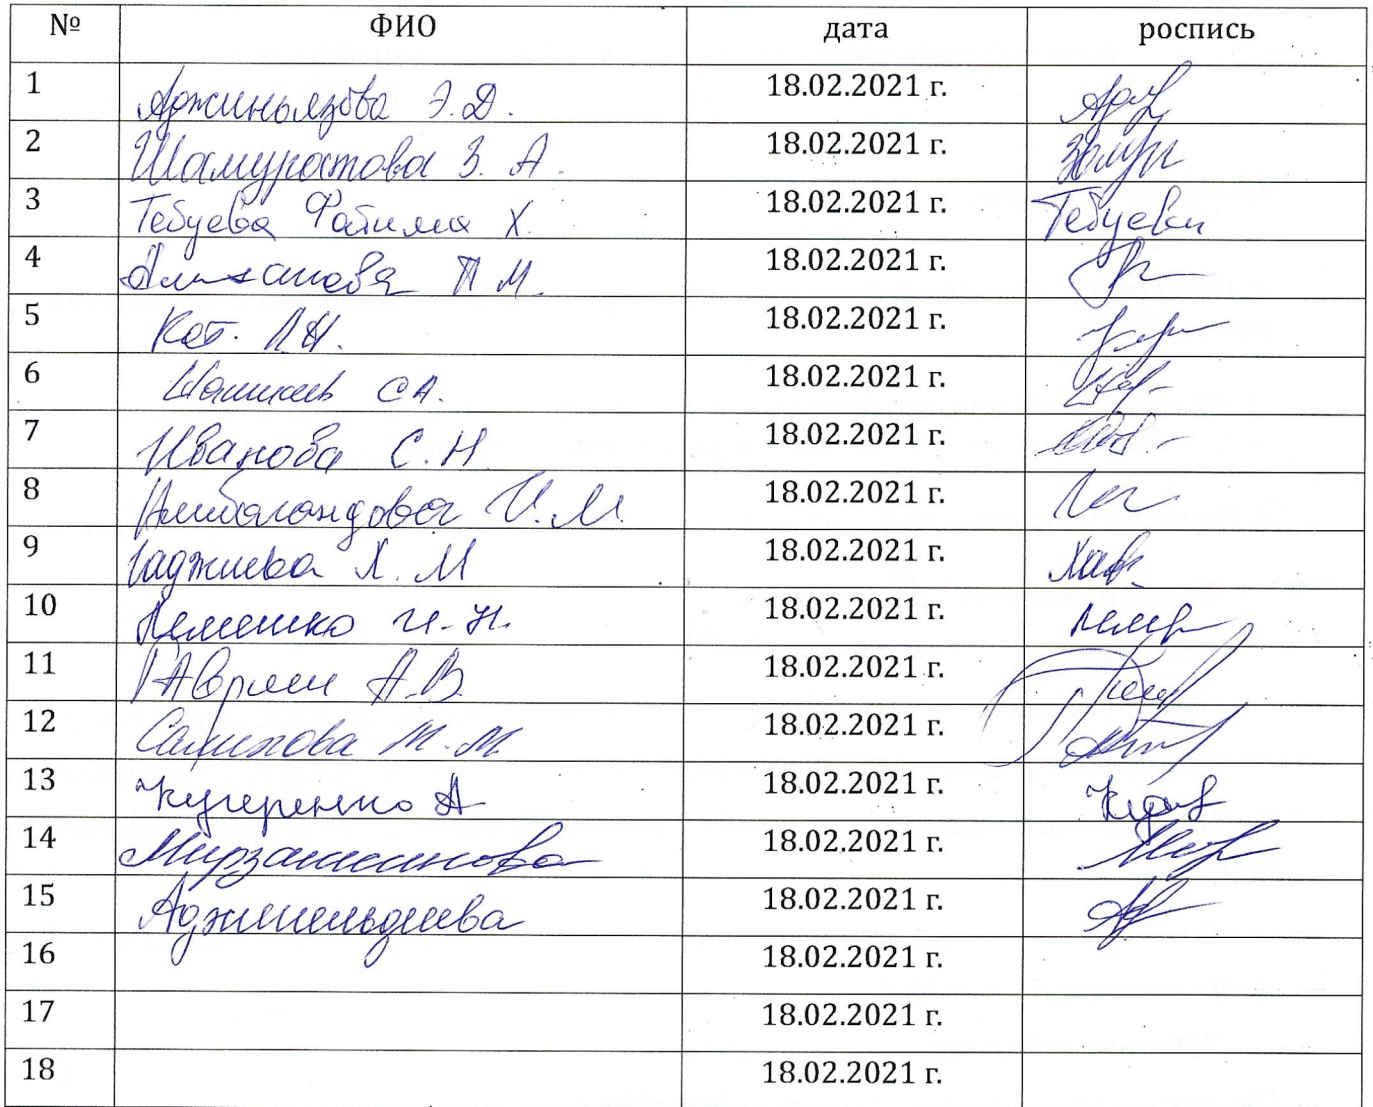 № ФИО дата роспись
1 Аджиньязова Э.Д. 18.02.2021 г.
2 Шамуратова З. А. 18.02.2021 г.
3 Тебуева Фатима Х. 18.02.2021 г. Тебуева
4 П М. 18.02.2021 г.
5 Кот. Л Н. 18.02.2021 г.
6 С А. 18.02.2021 г.
7 Иванова С. Н 18.02.2021 г.
8 И. М. 18.02.2021 г.
9 Гаджиева Х. М 18.02.2021 г.
10 Лемешко И. Н. 18.02.2021 г.
11 А.В. 18.02.2021 г.
12 Салихова М. М 18.02.2021 г.
13 Кучеренко А 18.02.2021 г.
14 18.02.2021 г.
15 Аджигельдиева 18.02.2021 г.
16 18.02.2021 г.
17 18.02.2021 г.
18 18.02.2021 г.